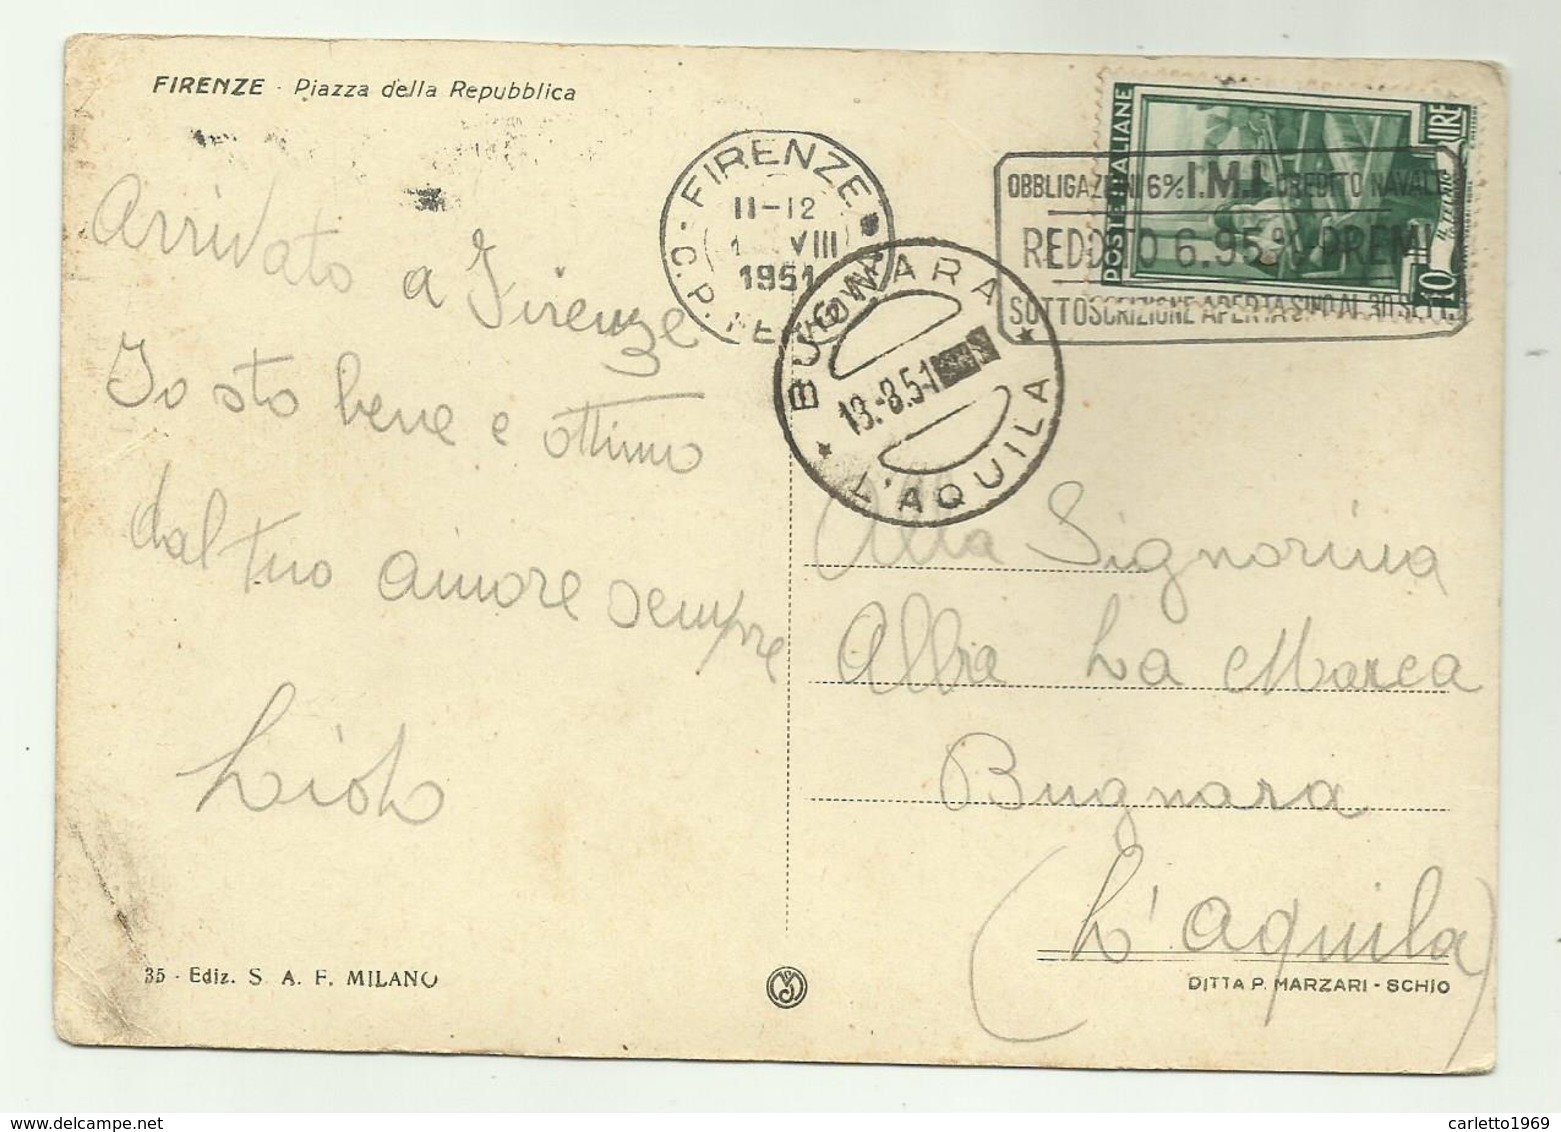 FIRENZE - Piazza della Repubblica
POSTE ITALIANE
LIRE
10
FIRENZE
11-12
VIII
1951
C.P.
OBBLIGAZIONI 6% I.M.I. CREDITO NAVALE
REDDITO 6.95% PREMI
SOTTOSCRIZIONE APERTA SINO AL 30 SETT.
BUGNARA
-8.51
L'AQUILA
Arrivato a Firenze
Io sto bene e ottimo
dal tuo amore sempre
Alla Signorina
Alba La Marca
Bugnara
(L'Aquila)
35 - Ediz. S. A. F. MILANO
DITTA P. MARZARI - SCHIO
carletto1969